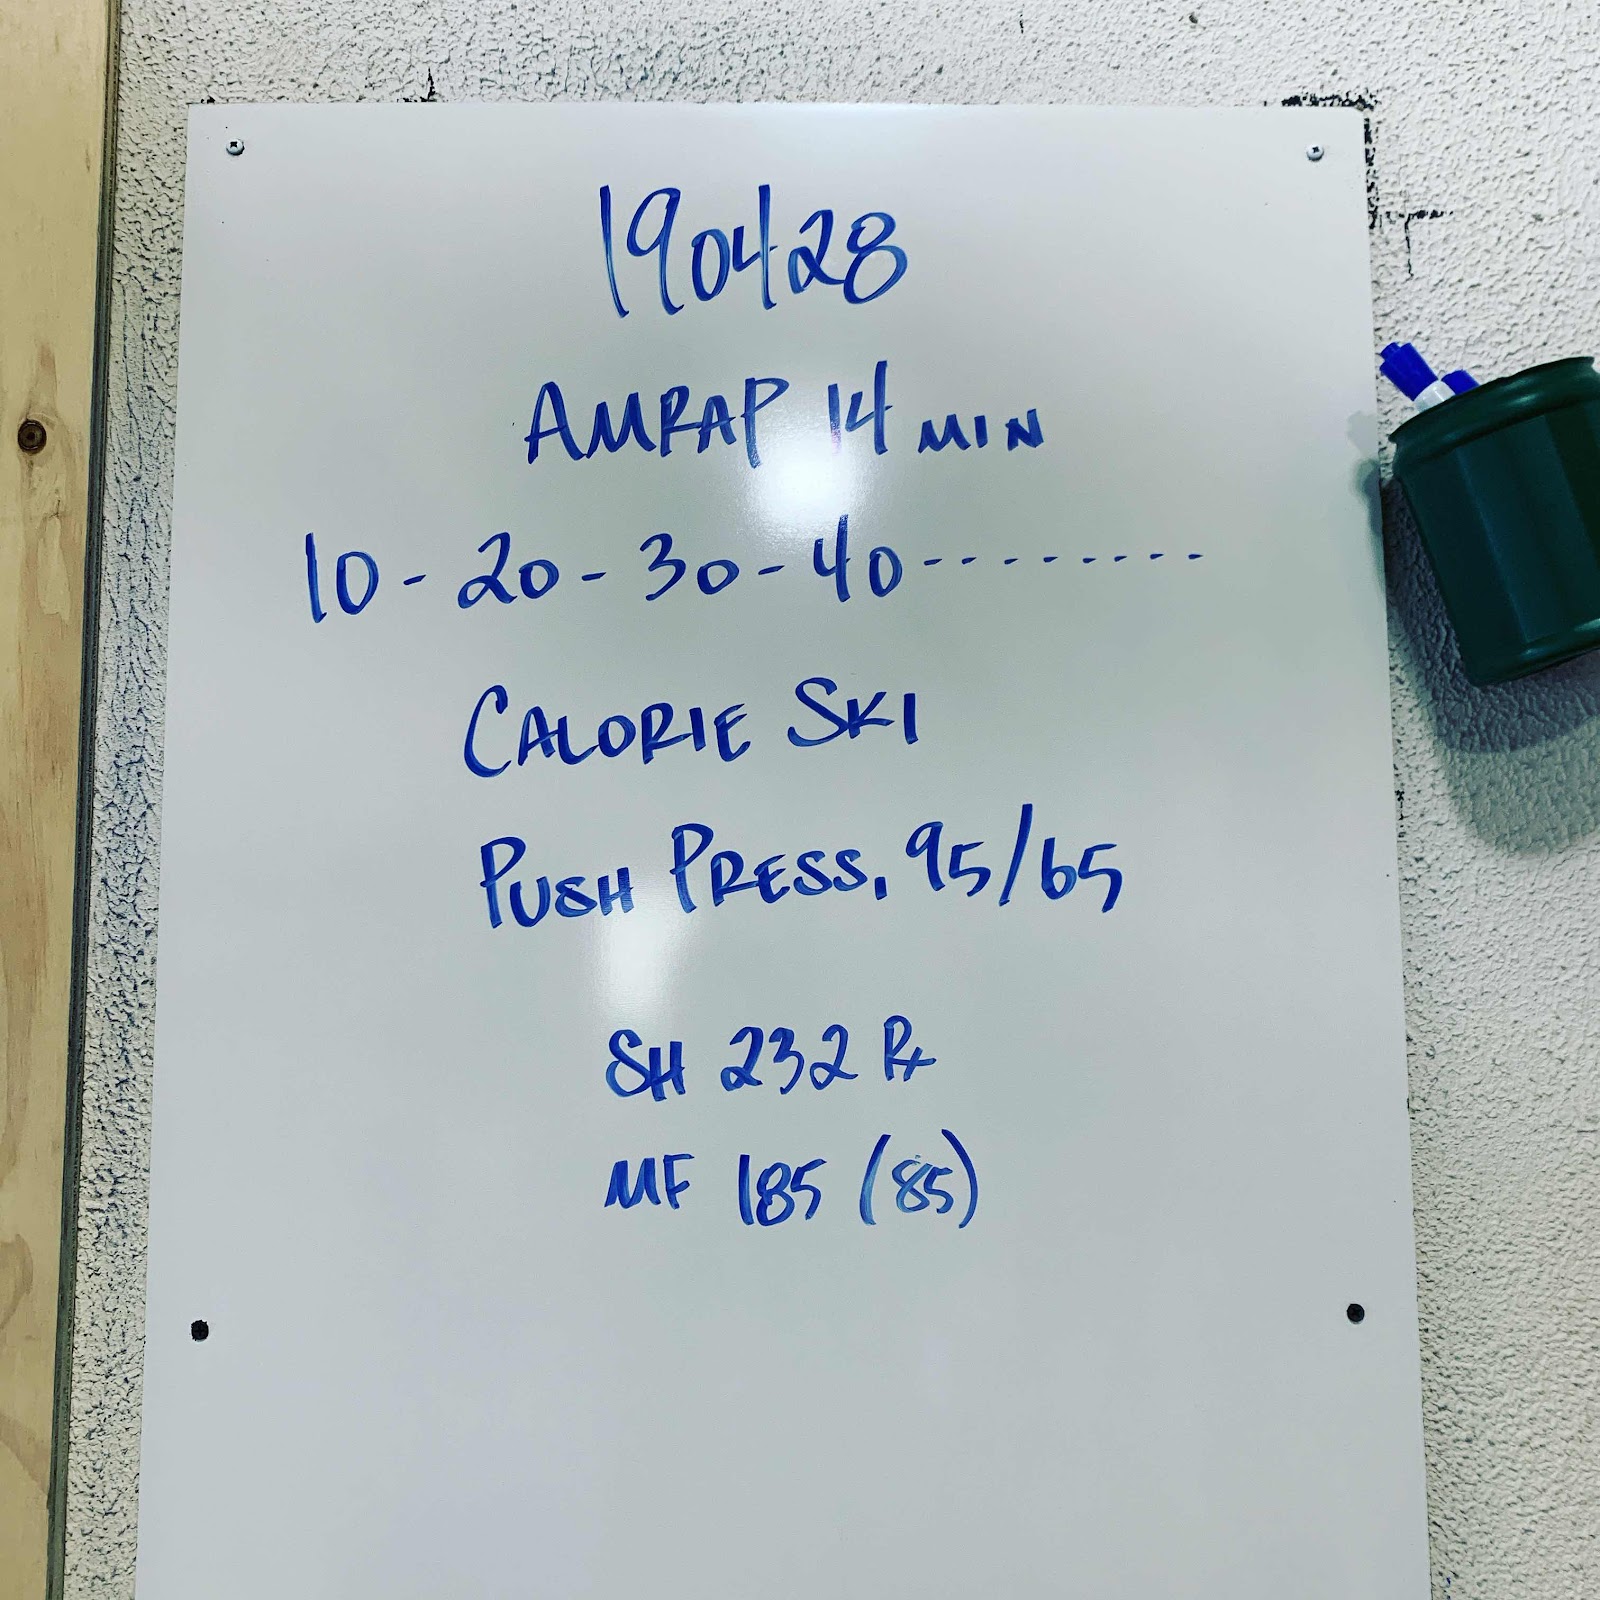 190428
AMRAP 14 MIN
10 - 20 - 30 - 40 - - - - - - - -
CALORIE SKI
PUSH PRESS, 95/65
SH 232 Rx
MF 185 (85)